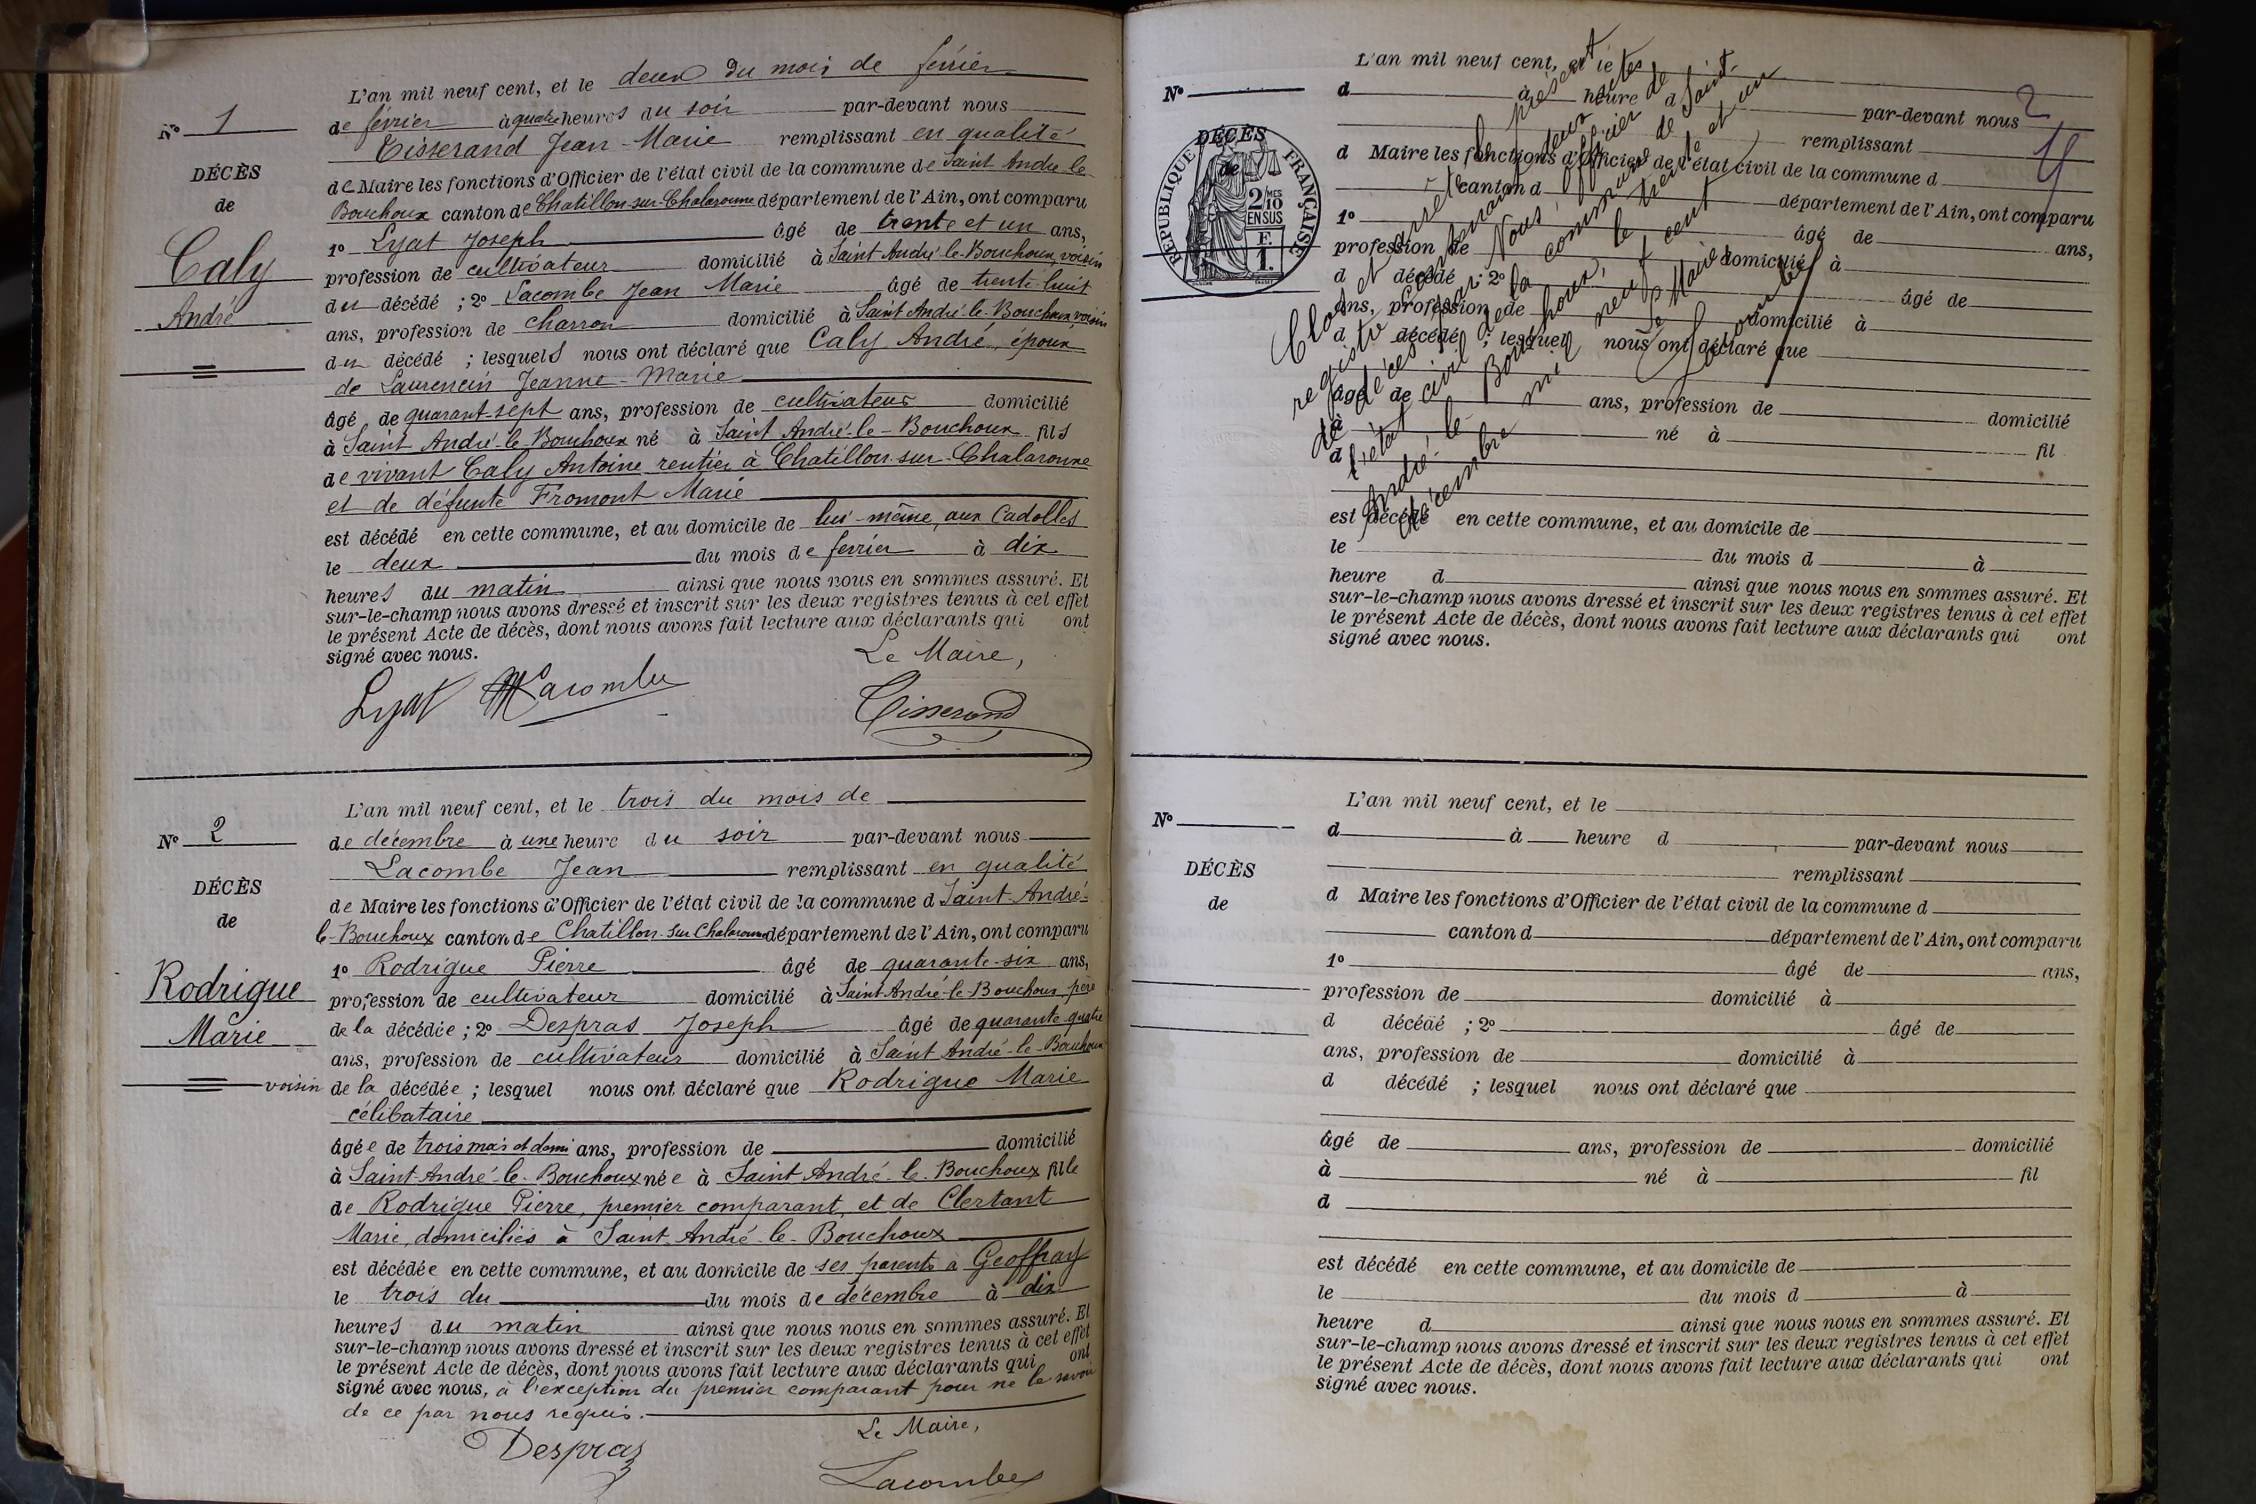 L'an mil neuf cent, et le deux du mois de février
N° 1
de février à quatre heures du soir par-devant nous
Tisserand Jean-Marie remplissant en qualité
DÉCÈS
de
Caly
André
de Maire les fonctions d'Officier de l'état civil de la commune de Saint André le
Bouchoux canton de Chatillon-sur-Chalaronne département de l'Ain, ont comparu
1° Lyat Joseph âgé de trente et un ans,
profession de cultivateur domicilié à Saint André-le-Bouchoux, voisin
du décédé ; 2° Lacombe Jean Marie âgé de trente huit
ans, profession de charron domicilié à Saint André-le-Bouchoux, voisin
du décédé ; lesquels nous ont déclaré que Caly André, époux
de Laurencin Jeanne-Marie
âgé de quarant-sept ans, profession de cultivateur domicilié
à Saint André-le-Bouchoux né à Saint André-le-Bouchoux fils
de vivant Caly Antoine rentier à Chatillon-sur-Chalaronne
et de défunte Fromont Marie
est décédé en cette commune, et au domicile de lui-même, aux Cadolles
le deux du mois de fevrier à dix
heures du matin ainsi que nous nous en sommes assuré. Et
sur-le-champ nous avons dressé et inscrit sur les deux registres tenus à cet effet
le présent Acte de décès, dont nous avons fait lecture aux déclarants qui ont
signé avec nous.
Le Maire,
Lyat Lacombe Tisserand
L'an mil neuf cent, et le trois du mois de
N° 2
de décembre à une heure du soir par-devant nous
Lacombe Jean remplissant en qualité
DÉCÈS
de
Rodrigue
Marie
de Maire les fonctions d'Officier de l'état civil de la commune d Saint-André-
le-Bouchoux canton de Chatillon-sur-Chalaronne département de l'Ain, ont comparu
1° Rodrigue Pierre âgé de quarante-six ans,
profession de cultivateur domicilié à Saint-André-le-Bouchoux, père
de la décédée ; 2° Despras Joseph âgé de quarante quatre
ans, profession de cultivateur domicilié à Saint André-le-Bouchoux
voisin de la décédée ; lesquel nous ont déclaré que Rodrigue Marie
célibataire
âgée de trois mois et demi ans, profession de domicilié
à Saint-André-le-Bouchoux née à Saint-André-le-Bouchoux fille
de Rodrigue Pierre, premier comparant, et de Clertant
Marie, domiciliés à Saint-André-le-Bouchoux
est décédée en cette commune, et au domicile de ses parents à Geoffray
le trois du du mois de décembre à dix
heures du matin ainsi que nous nous en sommes assuré. Et
sur-le-champ nous avons dressé et inscrit sur les deux registres tenus à cet effet
le présent Acte de décès, dont nous avons fait lecture aux déclarants qui ont
signé avec nous, à l'exception du premier comparant pour ne le savoir
de ce par nous requis.
Le Maire,
Despras Lacombe
L'an mil neuf cent, et le
N°
d à heure d par-devant nous
2
remplissant
DÉCÈS
de
RÉPUBLIQUE FRANÇAISE
2/10 MES
EN SUS
F.
1.
d Maire les fonctions d'Officier de l'état civil de la commune d
canton d département de l'Ain, ont comparu
1° âgé de ans,
profession de domicilié à
d décédé ; 2° âgé de
ans, profession de domicilié à
d décédé ; lesquel nous ont déclaré que
âgé de ans, profession de domicilié
à né à fil
d
est décédé en cette commune, et au domicile de
le du mois d à
heure d ainsi que nous nous en sommes assuré. Et
sur-le-champ nous avons dressé et inscrit sur les deux registres tenus à cet effet
le présent Acte de décès, dont nous avons fait lecture aux déclarants qui ont
signé avec nous.
Clos et arrêté le présent
registre contenant deux actes
de décès par Nous, Officier de
l'état civil de la commune de Saint-
André-le-Bouchoux, le trente et un
décembre mil neuf cent
Le Maire
Lacombe
L'an mil neuf cent, et le
N°
d à heure d par-devant nous
remplissant
DÉCÈS
de
d Maire les fonctions d'Officier de l'état civil de la commune d
canton d département de l'Ain, ont comparu
1° âgé de ans,
profession de domicilié à
d décédé ; 2° âgé de
ans, profession de domicilié à
d décédé ; lesquel nous ont déclaré que
âgé de ans, profession de domicilié
à né à fil
d
est décédé en cette commune, et au domicile de
le du mois d à
heure d ainsi que nous nous en sommes assuré. Et
sur-le-champ nous avons dressé et inscrit sur les deux registres tenus à cet effet
le présent Acte de décès, dont nous avons fait lecture aux déclarants qui ont
signé avec nous.